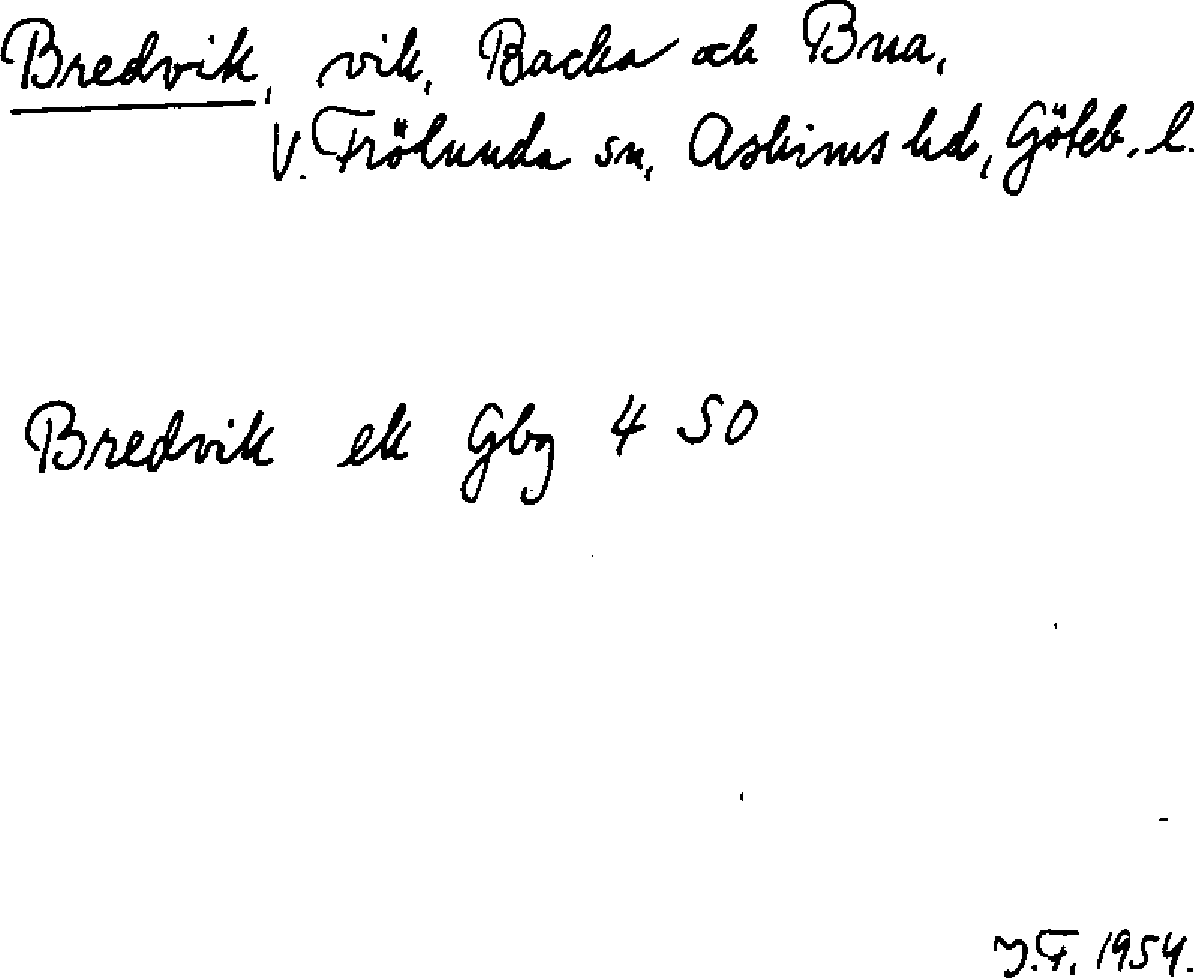 Bredvik, vik, Backa och Brua,
V. Frölunda sn, Askims hd, Göteb. l.
Bredvik ek Gbg 4 SO
J.F. 1954.